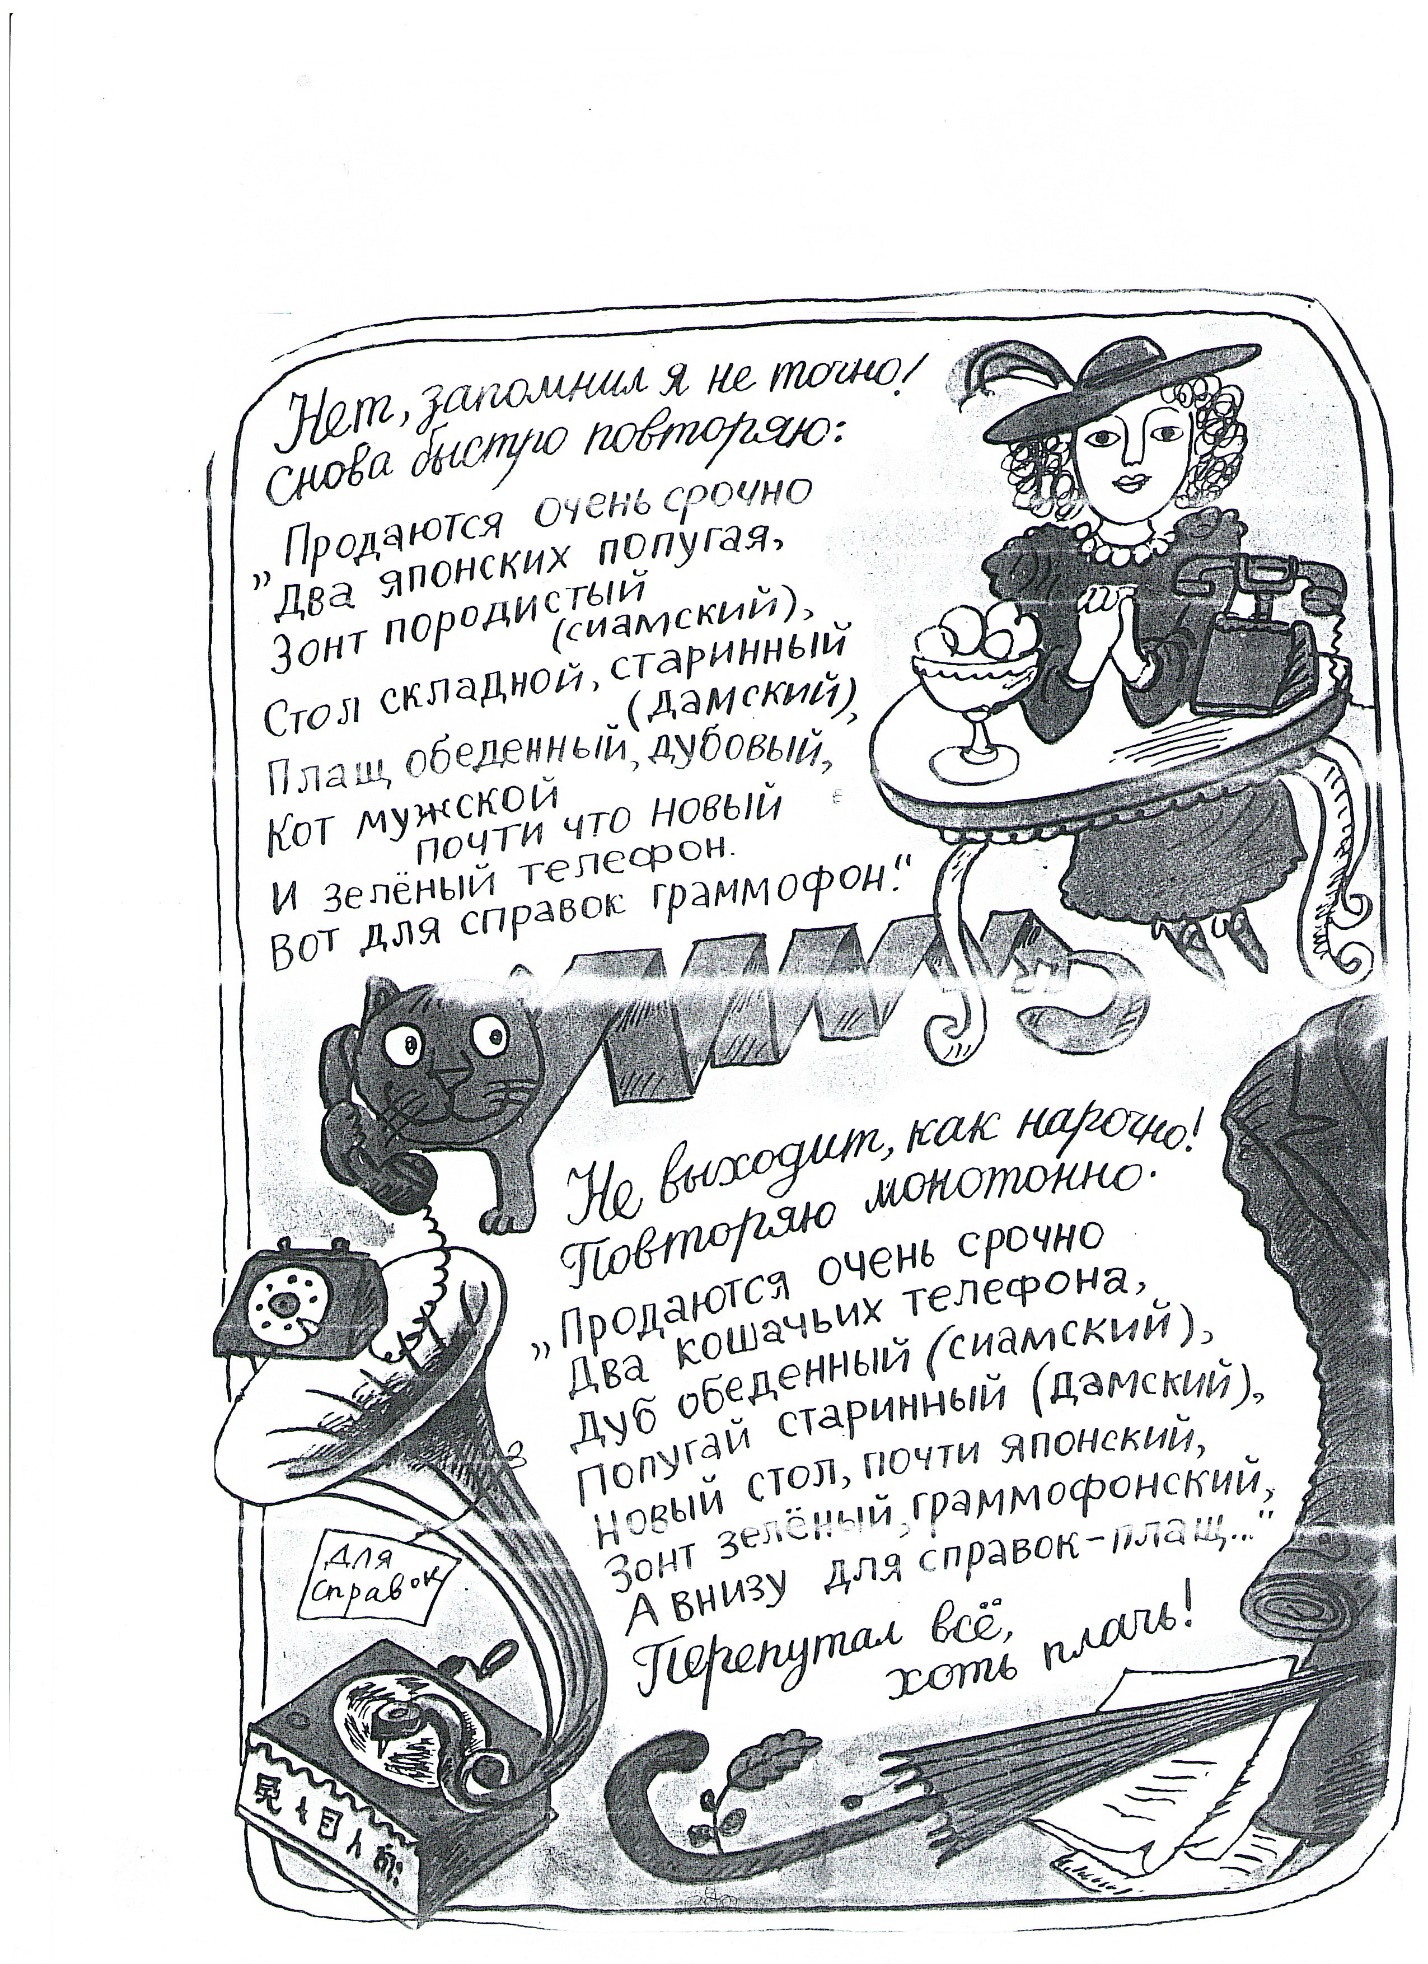 Нет, запомнил я не точно!
снова быстро повторяю:
"Продаются очень срочно
Два японских попугая,
Зонт породистый
(сиамский),
Стол складной, старинный
(дамский),
Плащ обеденный, дубовый,
Кот мужской
почти что новый
И зелёный телефон.
Вот для справок граммофон."
Не выходит, как нарочно!
Повторяю монотонно.
"Продаются очень срочно
Два кошачьих телефона,
Дуб обеденный (сиамский),
Попугай старинный (дамский),
Новый стол, почти японский,
Зонт зелёный, граммофонский,
А внизу для справок-плащ..."
Перепутал всё,
хоть плачь!
для
справок